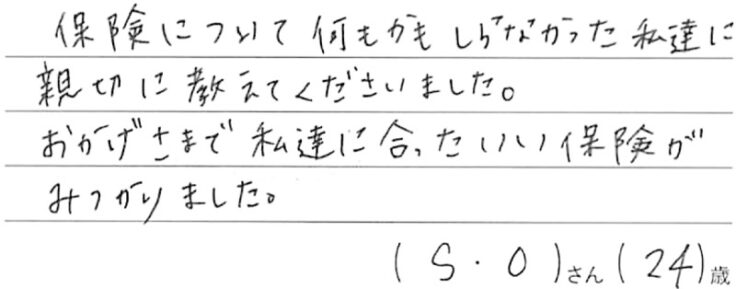 保険について何もかもしらなかった私達に
親切に教えてくださいました。
おかげさまで私達に合ったいい保険が
みつかりました。
(S・O)さん(24)歳